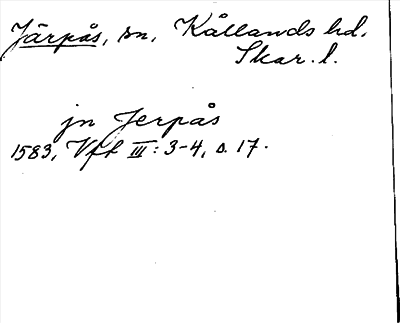 Järpås, sn, Kållands hd.
Skar. l.
jn Jerpås
1583, Vft III: 3-4, s. 17.